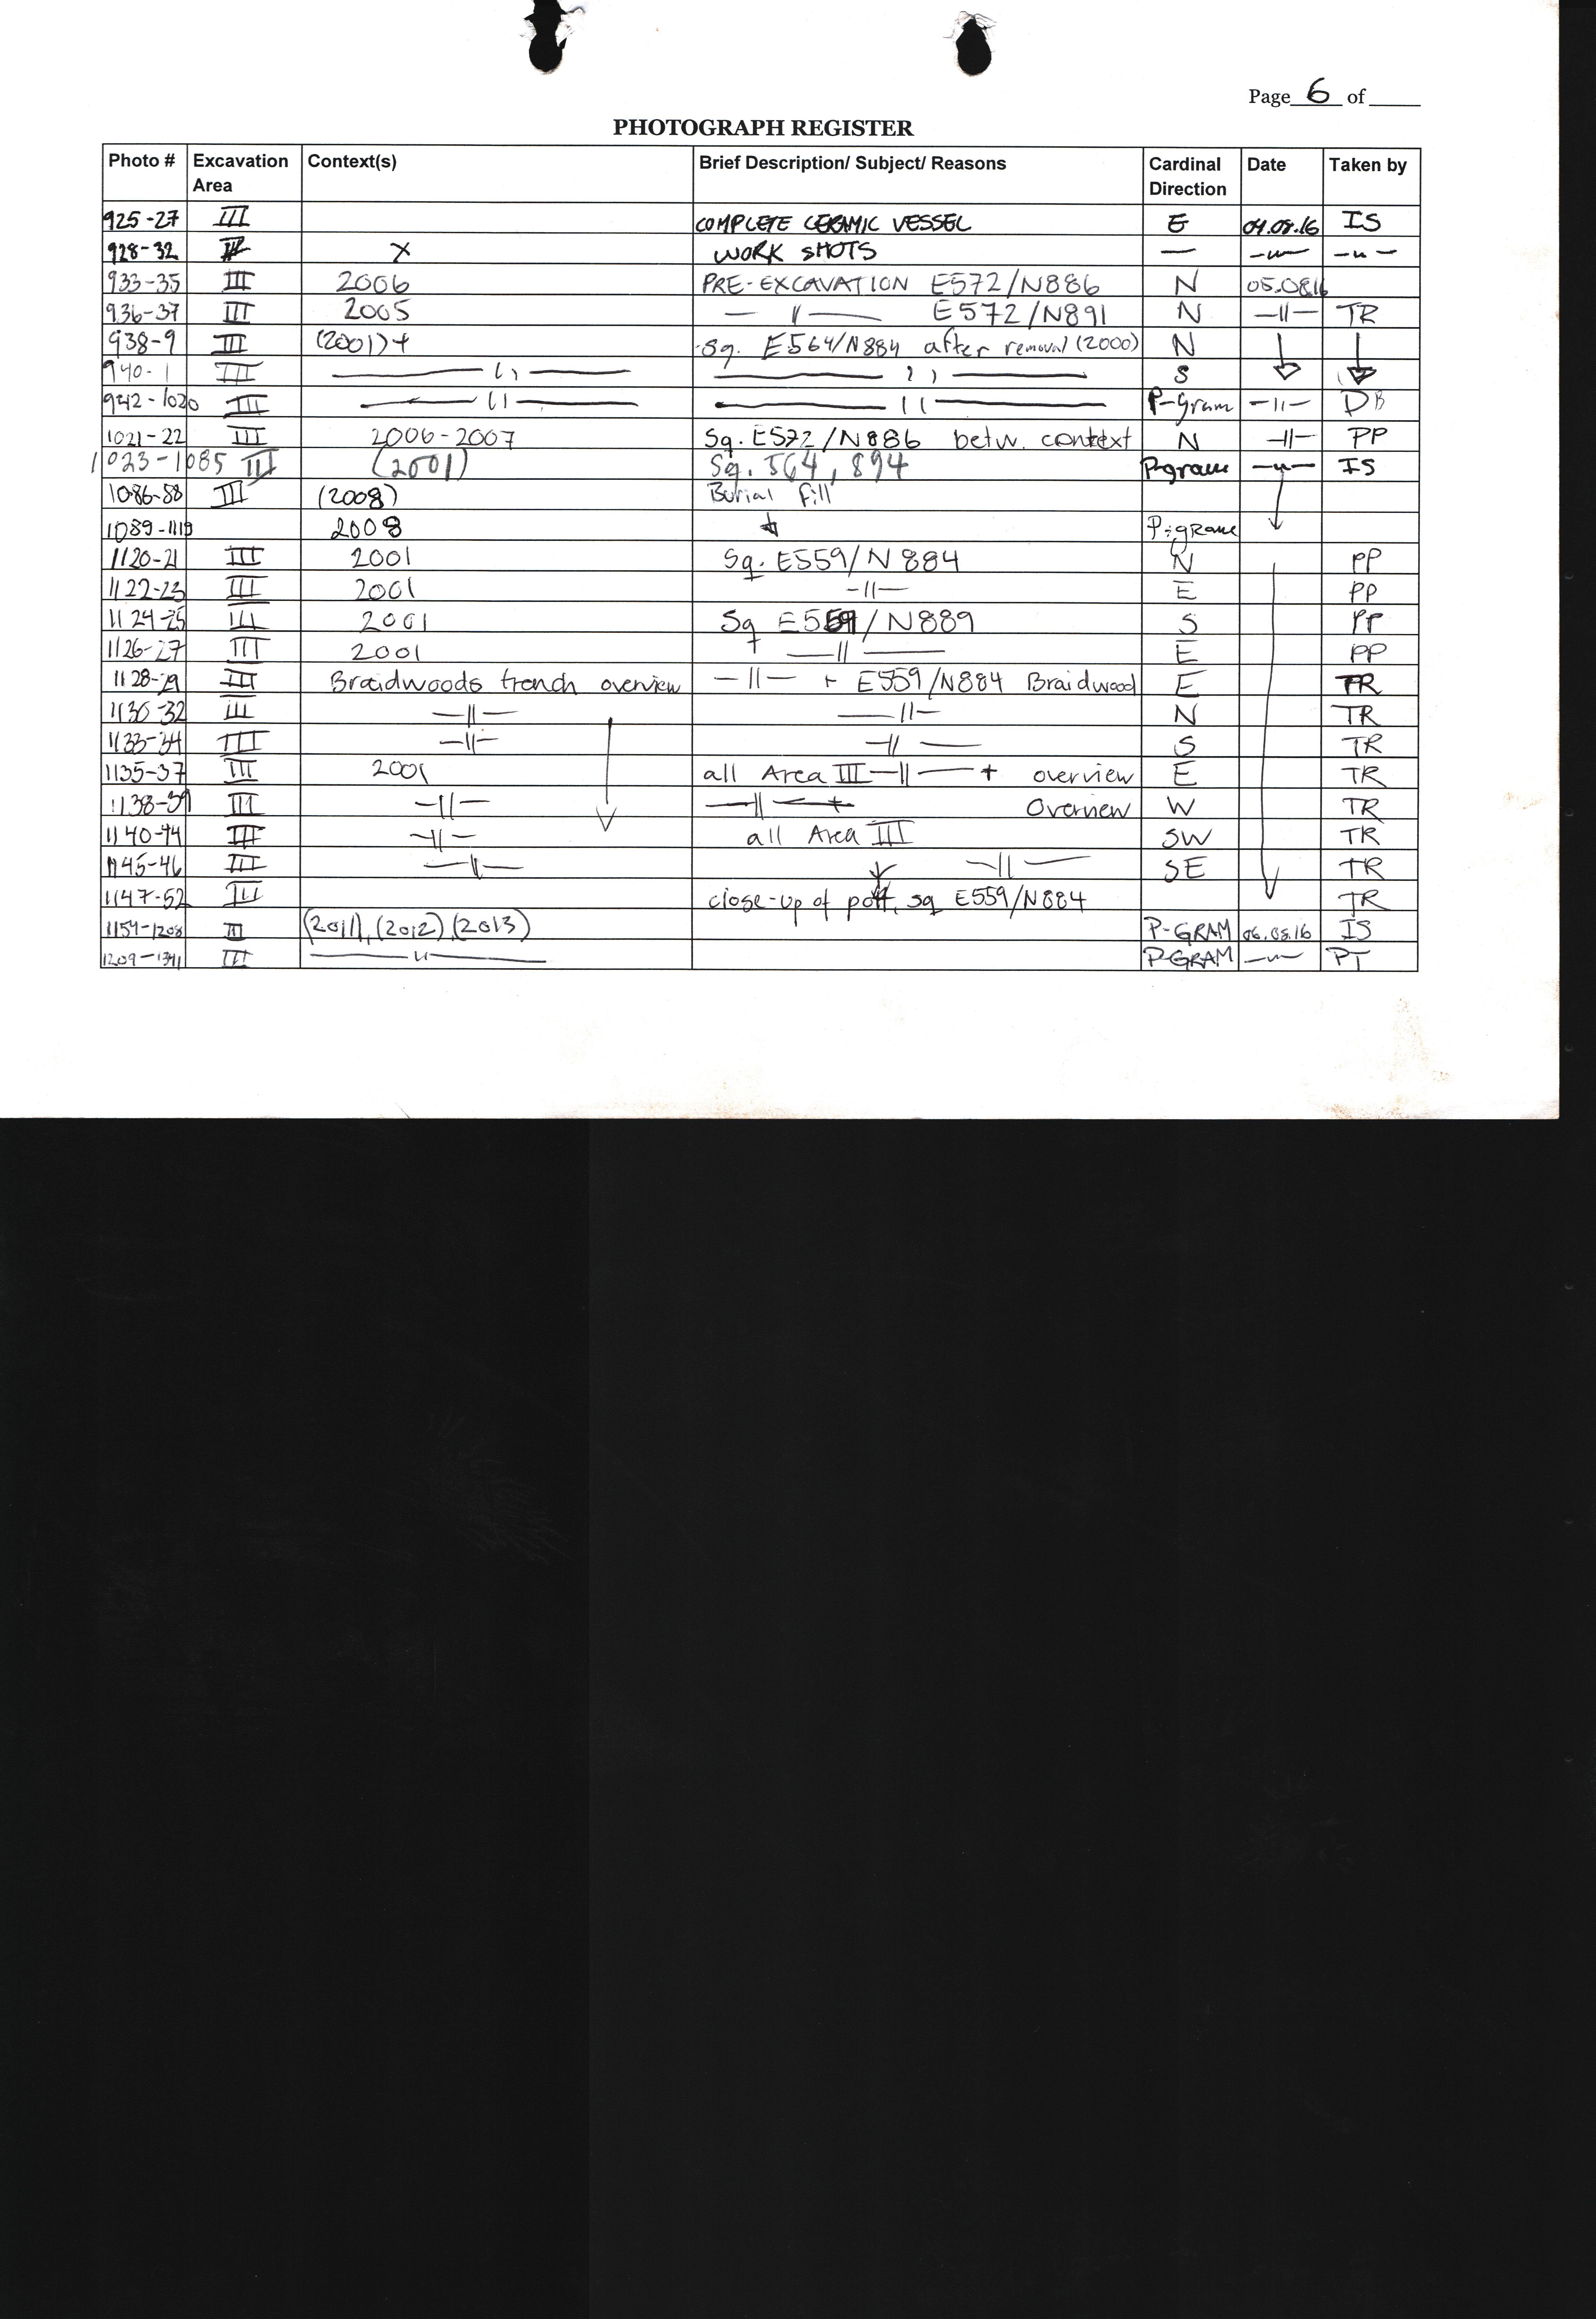 Page 6 of
PHOTOGRAPH REGISTER
Photo # Excavation Area Context(s) Brief Description/ Subject/ Reasons Cardinal Direction Date Taken by
925-27 III COMPLETE CERAMIC VESSEL E 04.08.16 IS
928-32 X WORK SHOTS — —"— —"—
933-35 III 2006 PRE-EXCAVATION E572/N886 N 05.0816
936-37 III 2005 — " — E572/N891 N —"— TR
938-9 III (2001)+ Sq. E564/N884 after removal (2000) N ↓ ↓
940-1 III — " — — " — S
942-1020 III — " — — " — P-Gram —"— DB
1021-22 III 2006-2007 Sq. E572/N886 betw. context N —"— PP
1023-1085 III (2001) Sq. 564, 894 P-gram —"— IS
1086-88 III (2008) Burial fill ↓
1089-1119 2008 ↓ P-gram
1120-21 III 2001 Sq. E559/N884 N PP
1122-23 III 2001 —"— E PP
1124-25 III 2001 Sq E559/N889 S PP
1126-27 III 2001 + —"— E PP
1128-29 III Braidwoods trench overview —"— + E559/N884 Braidwood E TR
1130-32 III —"— —"— N TR
1133-34 III —"— —"— S TR
1135-37 III 2001 all Area III —"— + overview E TR
1138-39 III —"— —"— + Overview W TR
1140-44 III —"— all Area III SW TR
1145-46 III —"— ↓ —"— SE TR
1147-52 III close-up of pot, sq E559/N884 TR
1154-1208 III (2011), (2012), (2013) P-GRAM 06.08.16 IS
1209-1341 III —"— P-GRAM —"— PT